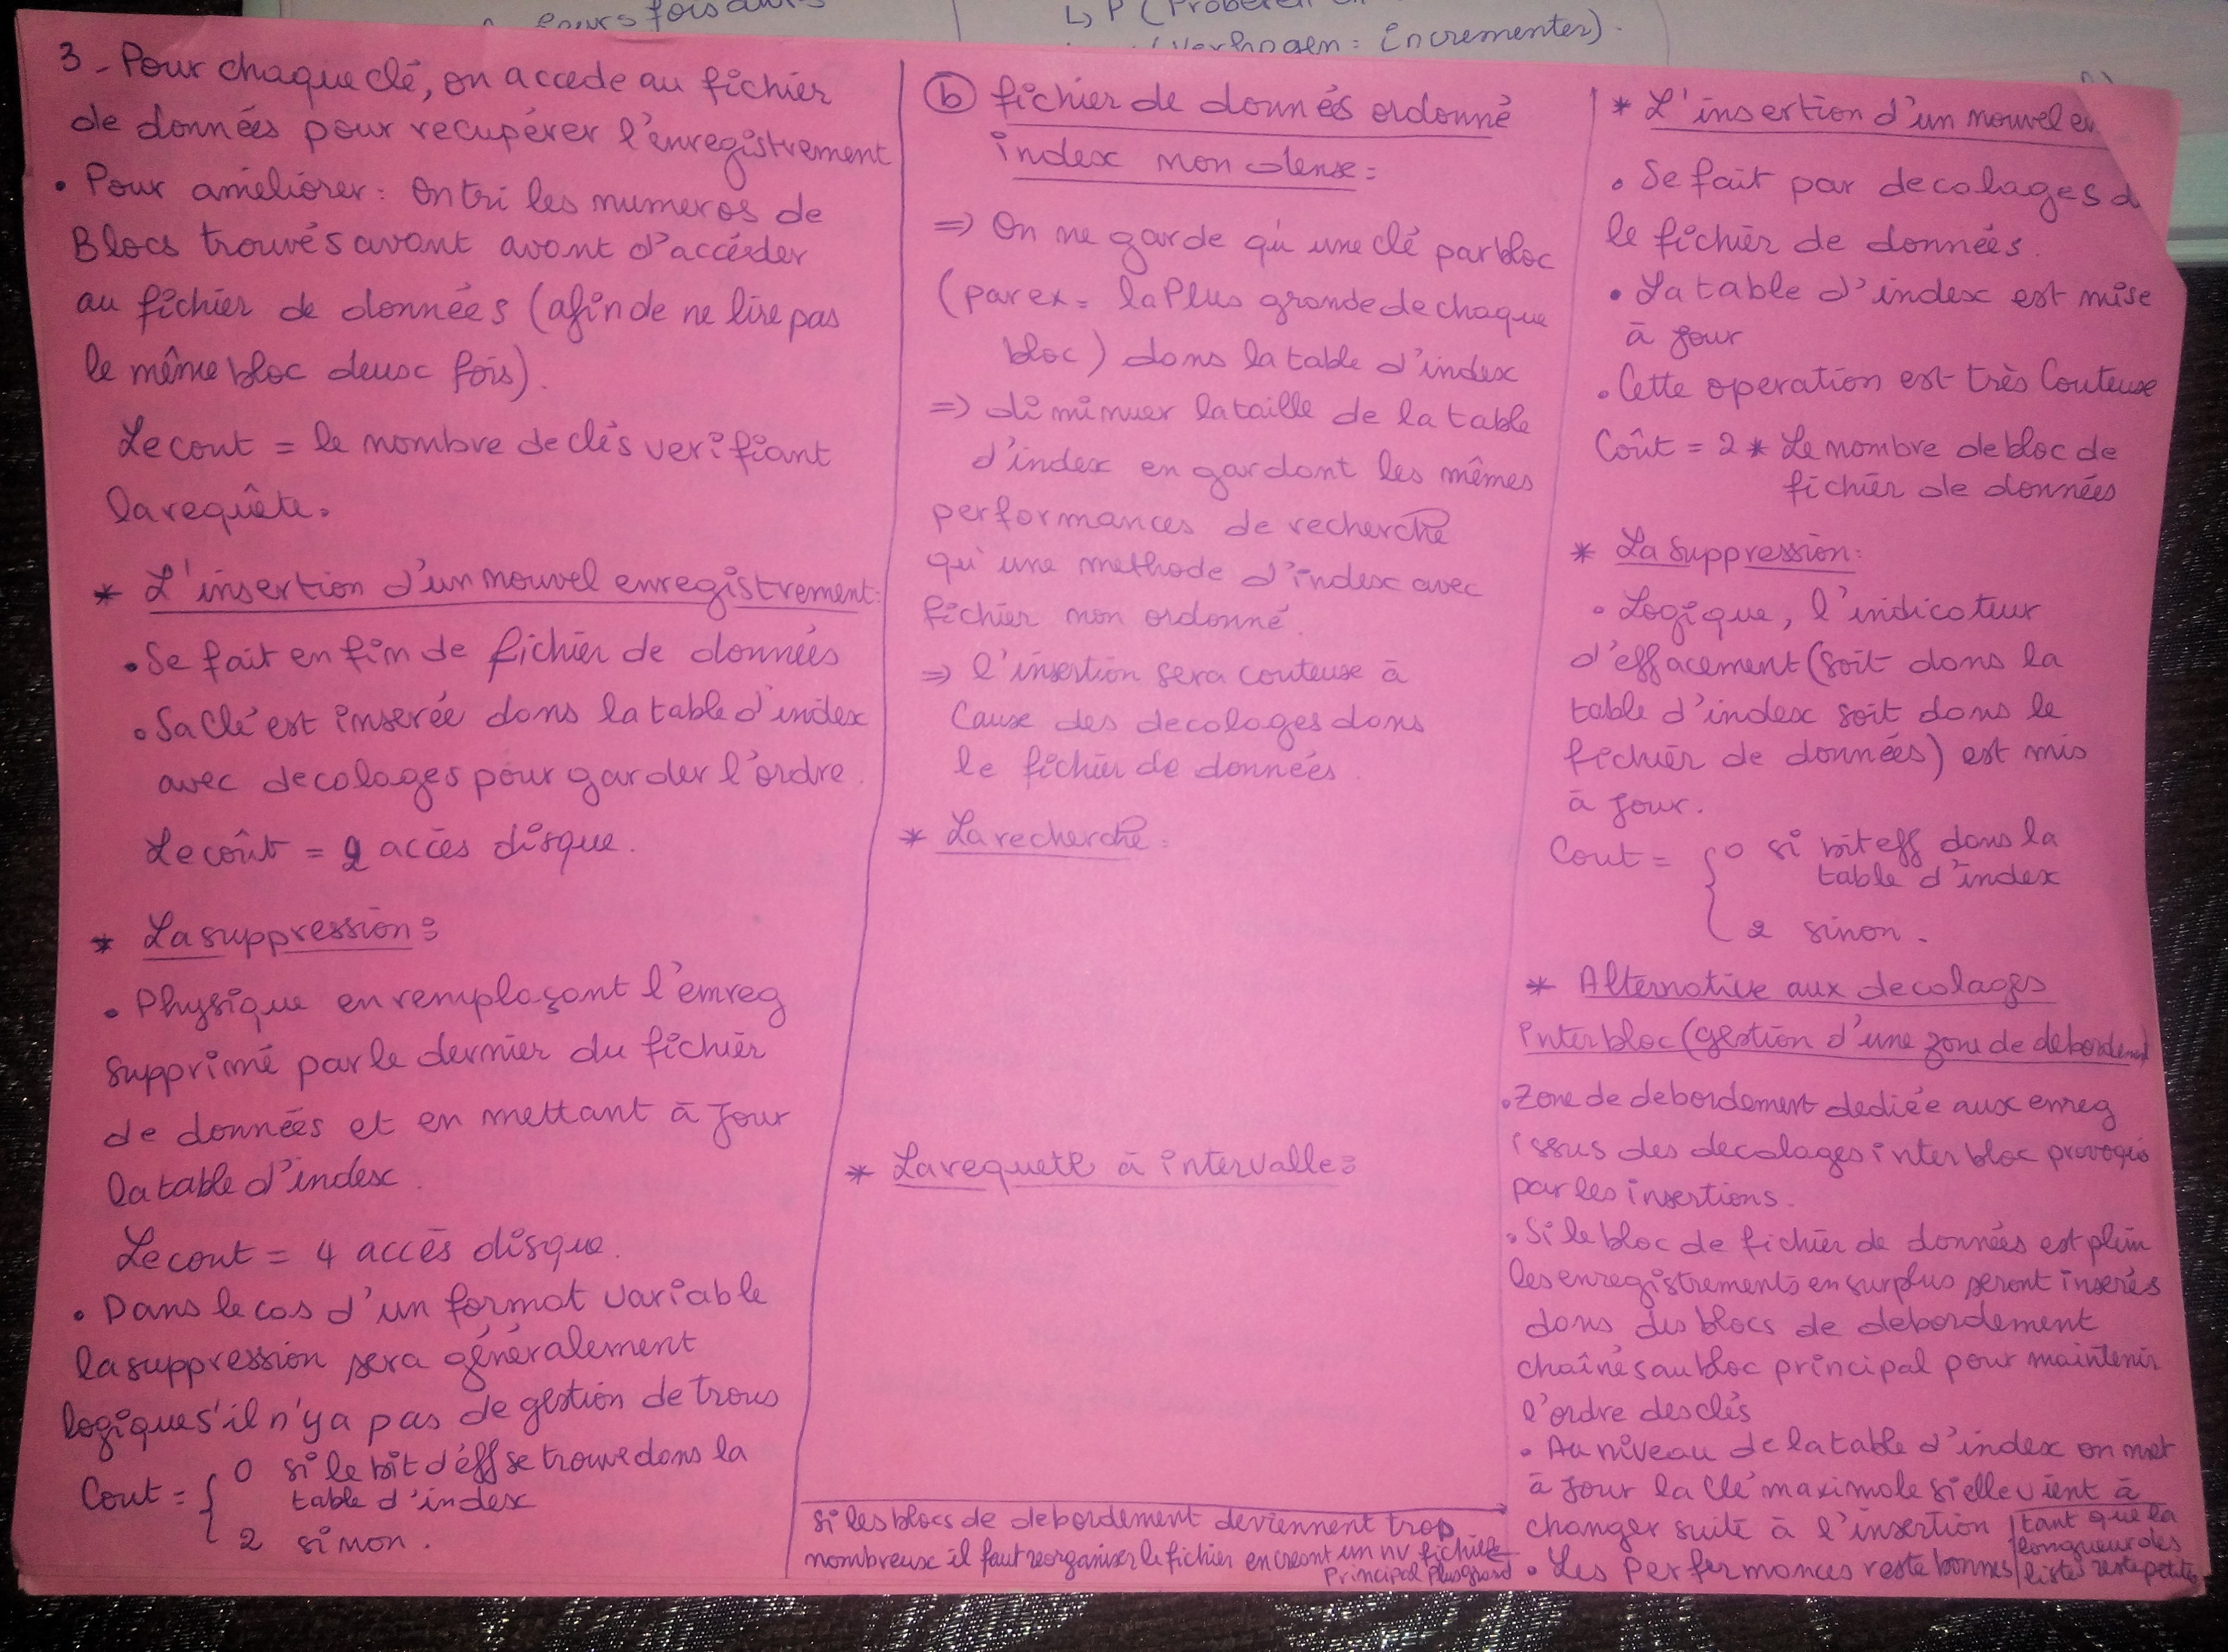 cours fois dans
↳ P (Proberen
(Verhogen = incrementer).
3 - Pour chaque clé, on accede au fichier
de données pour recupérer l'enregistrement
• Pour améliorer : On tri les numeros de
Blocs trouvés avant avant d'accéder
au fichier de données (afin de ne lire pas
le même bloc deux fois).
Le cout = le nombre de clés verifiant
la requête.
* L'insertion d'un nouvel enregistrement :
• Se fait en fin de fichier de données
• Sa clé est inserée dans la table d'index
avec decalages pour garder l'ordre.
Le coût = 2 accès disque.
* La suppression :
• Physique en remplaçant l'enreg
supprimé par le dernier du fichier
de données et en mettant à jour
la table d'index.
Le cout = 4 accès disque.
• Dans le cas d'un format variable
la suppression sera généralement
logique s'il n'y a pas de gestion de trous
Cout = { 0 si le bit d'eff se trouve dans la
table d'index
2 sinon.
(b) fichier de donnés ordonné
index non dense :
=> On ne garde qu'une clé par bloc
(par ex = la Plus grande de chaque
bloc) dans la table d'index
=> diminuer la taille de la table
d'index en gardant les mêmes
performances de recherche
qu'une methode d'index avec
fichier non ordonné.
=> l'insertion sera couteuse à
Cause des decalages dans
le fichier de données.
* La recherche :
* La requete à intervalle :
si les blocs de debordement deviennent trop
nombreux il faut reorganiser le fichier en creant un nv fichier
Principal Plus grand
* L'insertion d'un nouvel en
• Se fait par decalages d
le fichier de données.
• La table d'index est mise
à jour
• Cette operation est très Couteuse
Coût = 2 * Le nombre de bloc de
fichier de données
* La Suppression :
• Logique, l'indicateur
d'effacement (soit dans la
table d'index soit dans le
fichier de données) est mis
à jour.
Cout = { 0 si bit eff dans la
table d'index
2 sinon.
* Alternative aux decalages
inter bloc (gestion d'une zone de debordement)
• Zone de debordement dediée aux enreg
issus des decalages inter bloc provoqués
par les insertions.
• Si le bloc de fichier de données est plein
les enregistrements en surplus seront inserés
dans des blocs de debordement
chaînés au bloc principal pour maintenir
l'ordre des clés
• Au niveau de la table d'index on met
à jour la clé maximale si elle vient à
changer suite à l'insertion
• Les Performances reste bonnes
tant que la
longueur des
listes reste petites